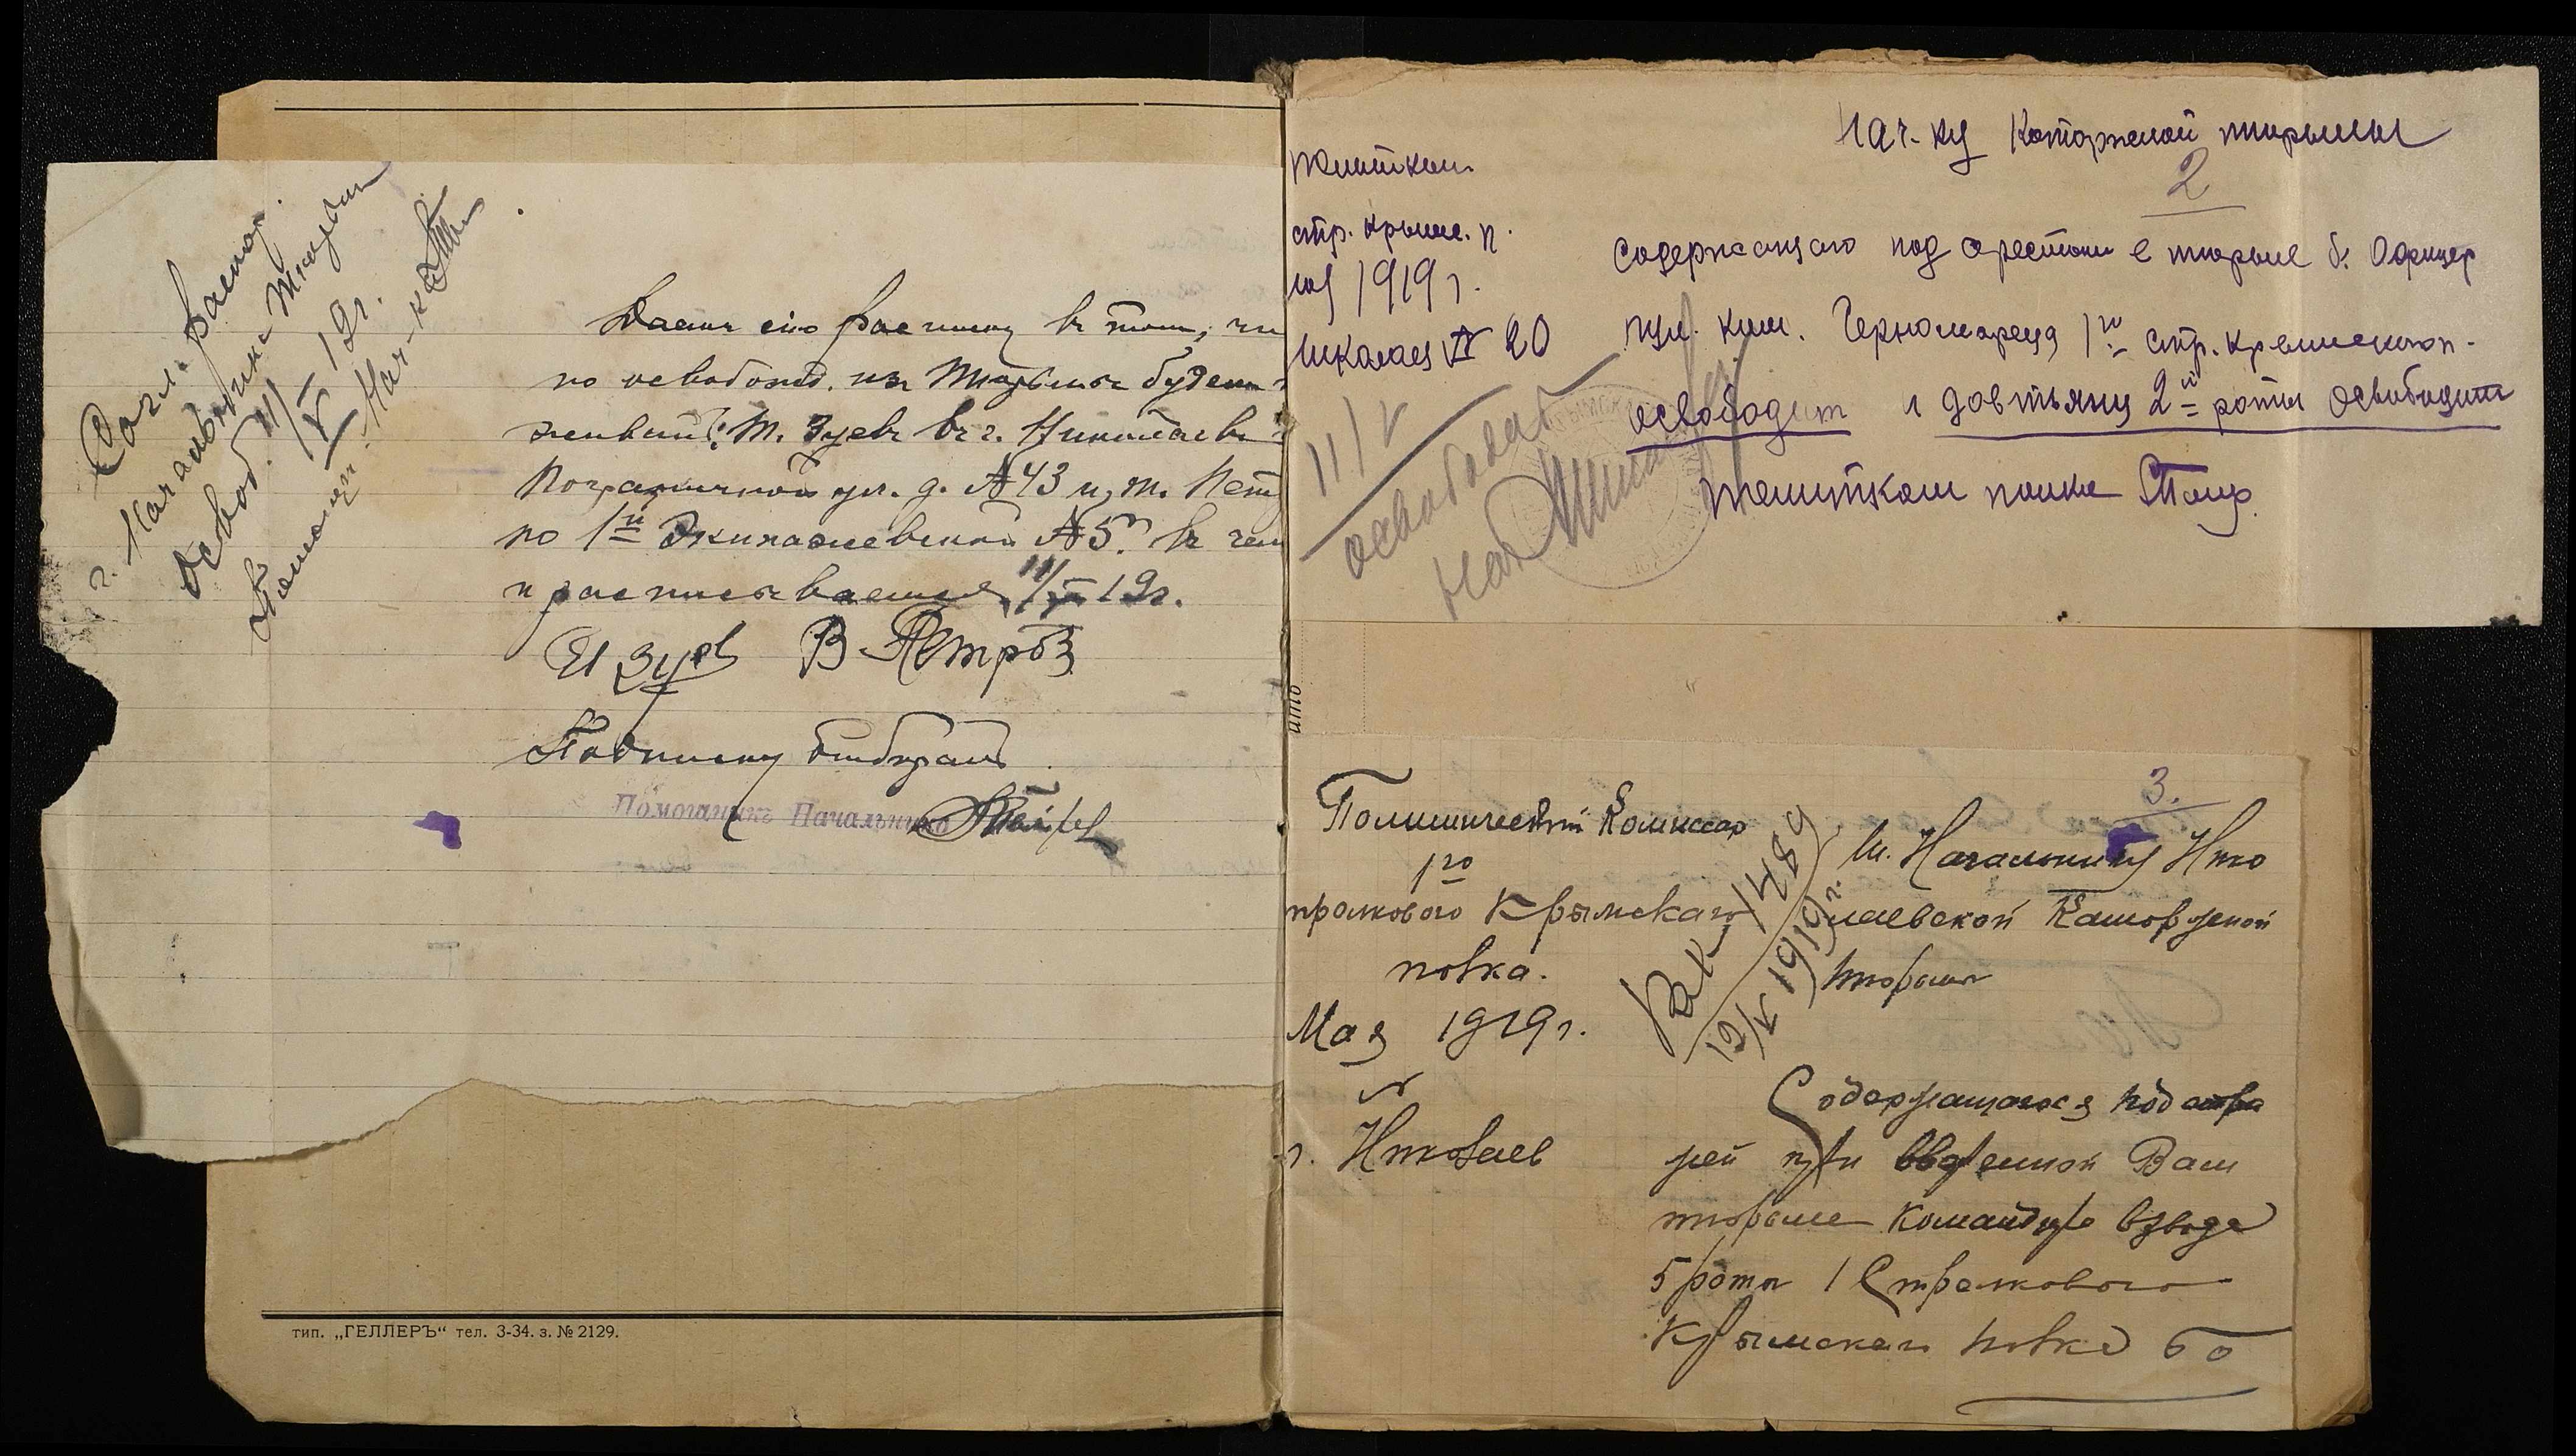 Согл. распор.
г. Начальника Тюрьмы
освоб. 11/V 19г.
Помощн. Нач-ка
Даем сию расписку в том, что
по освобожд. из Тюрьмы будем
живем: Т. Зуевъ въ г. Николаевѣ
Пограничной ул. д. №43 и, т. Петр
по 1й Экипажеской №5. въ чем
и расписываемся 11/V 19г.
И Зуев В Петров
Подписку отобрал
Помощникъ Начальника
тип. „ГЕЛЛЕРЪ“ тел. 3-34. з. № 2129.
Нач-ку Каторжной тюрьмы
2
политком
стр. крымс. п.
мая 1919 г.
Николаев № 20
Содержащаго под арестом в тюрьме б. Офицер
пул. ком. Черноморца 1го стр. крымского п.
освободит и Довтьяну 2й роты освободит
политком полка
11/V
освободит
Нач
Политический Комиссар
1го
стрелкового Крымскаго
полка.
Мая 1919 г.
№
г. Николаев
3.
Вх. 1489
12/V 1919 г.
т. Начальнику Нико
лаевской Каторжной
тюрьмы
Содержащагося под стра
жей при вверенной Вам
тюрьме Командира взвода
5 роты 1 Стрелкового
Крымскаго полка